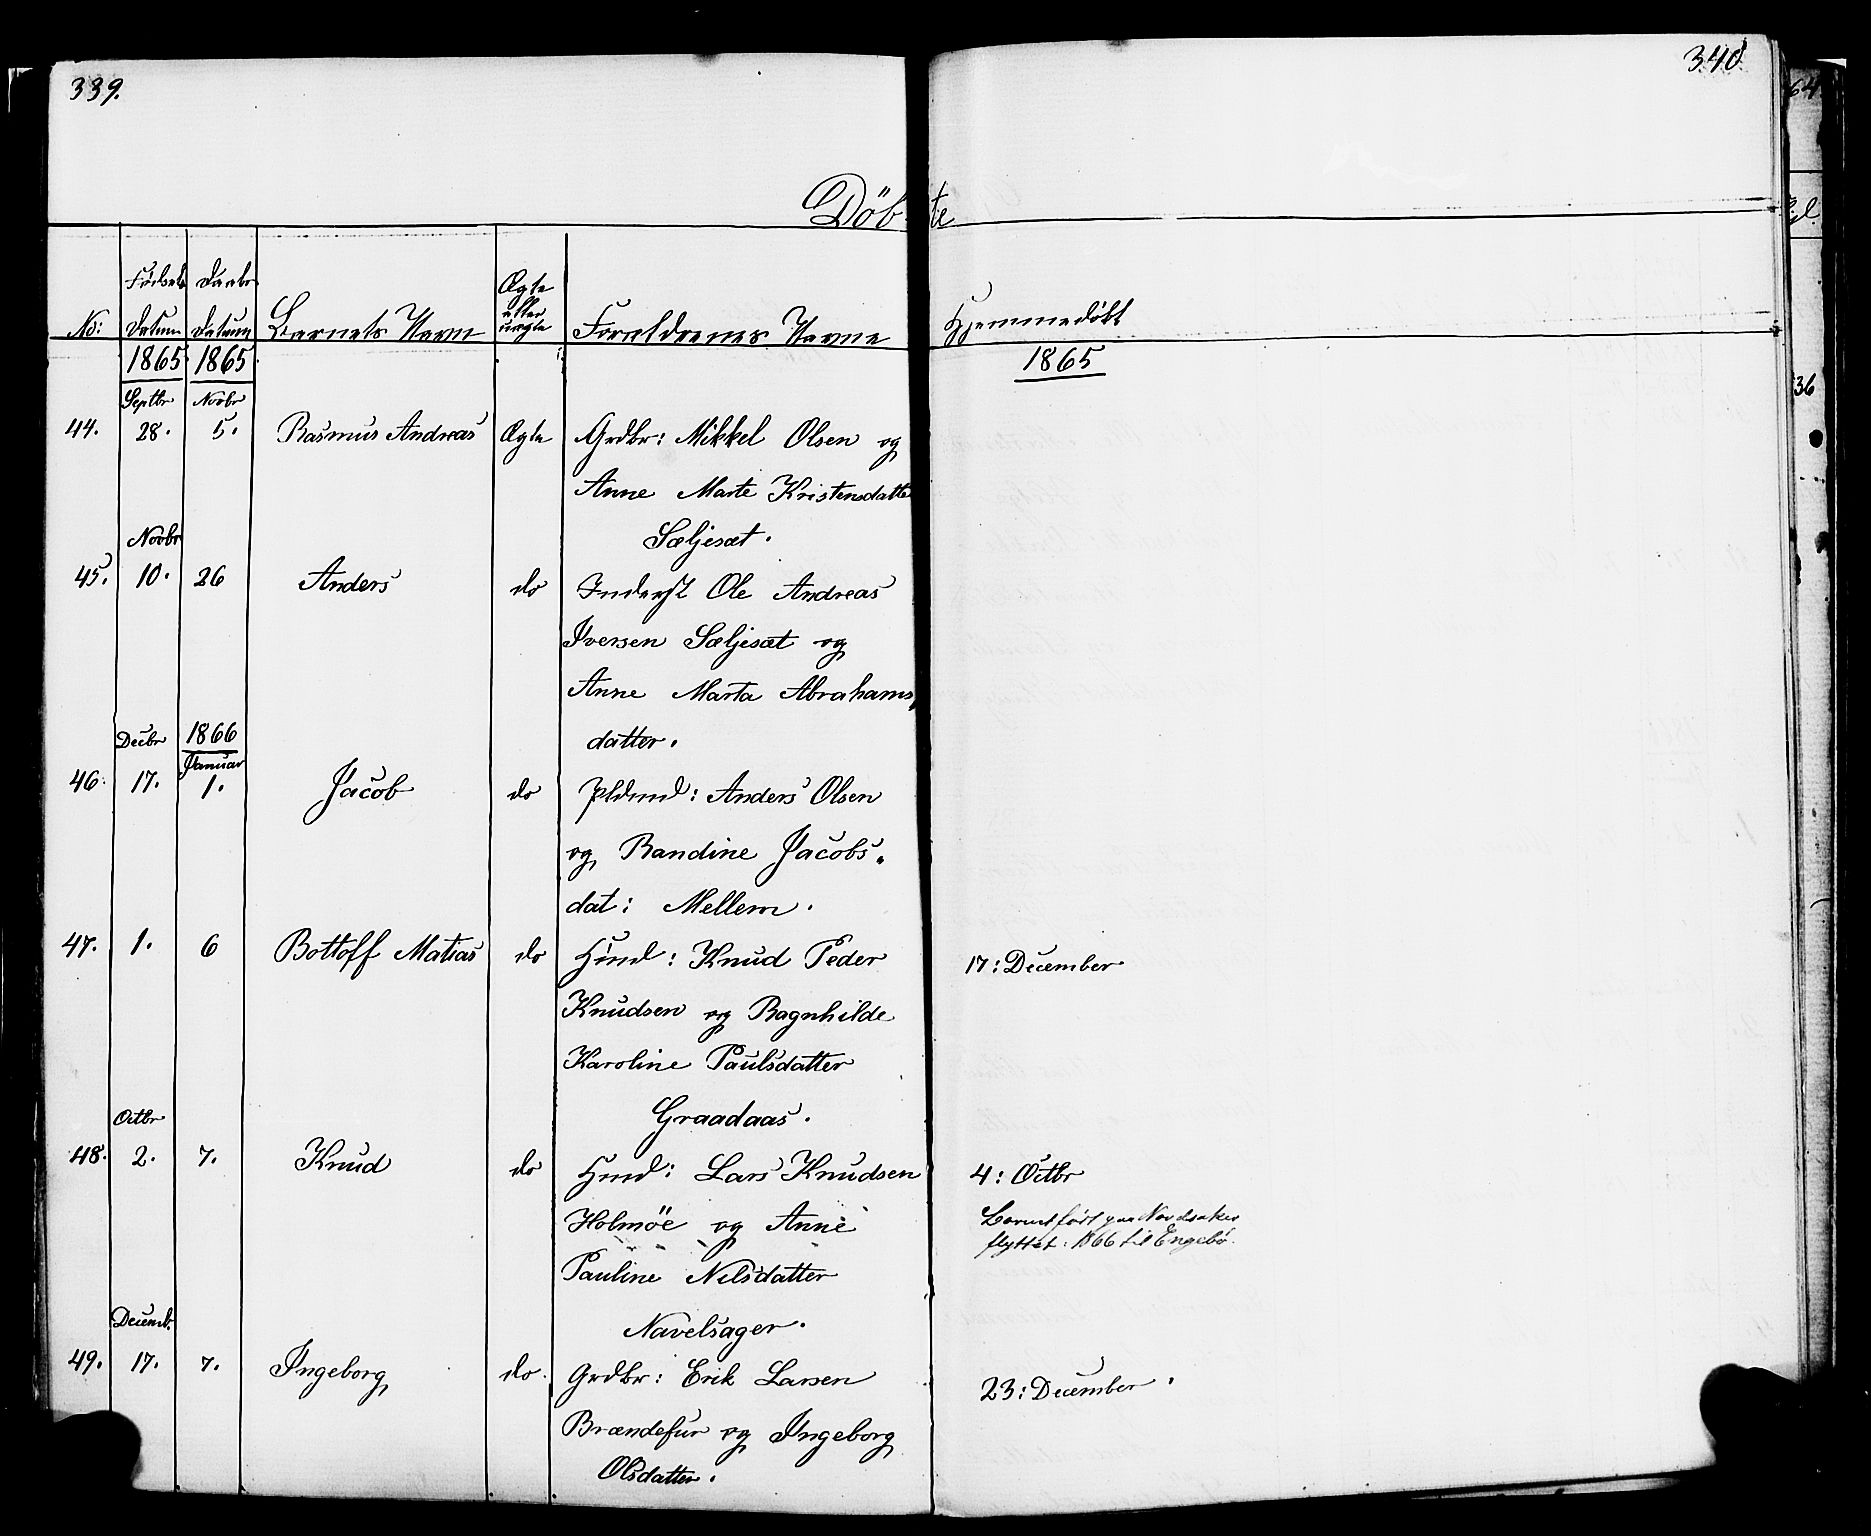 339.
340
Döbte
No: Födsels Datum Daabs Datum Barnets Navn Ægte eller uægte Forældrenes Navne Hjemmedöbt
1865 1865 1865
Septbr Novbr
44. 28. 5. Rasmus Andreas Ægte Grdbr: Mikkel Olsen og
Anne Marte Kristensdatte
Sæljesæt.
Novbr
45. 10. 26 Anders do Inderst Ole Andreas
Iversen Sæljesæt og
Anne Marta Abrahams,
datter.
Decbr 1866
Januar
46. 17. 1. Jacob do Pldmd: Anders Olsen
og Randine Jacobs-
dat: Mellem.
47. 1. 6 Bottoff Matias do Hmd: Knud Peder
Knudsen og Ragnhilde
Karoline Paulsdatter
Graadaas.
17: December
Octbr
48. 2. 7. Knud do Hmd: Lars Knudsen
Holmöe og Anne
Pauline Nilsdatter
Navelsager.
4: Octbr
Barnet födt paa Navelsaker
flyttet: 1866 til Engebö.
Decemb.
49. 17. 7. Ingeborg do. Grdbr: Erik Larsen
Brændefur og Ingeborg
Olsdatter.
23: December.
64
36